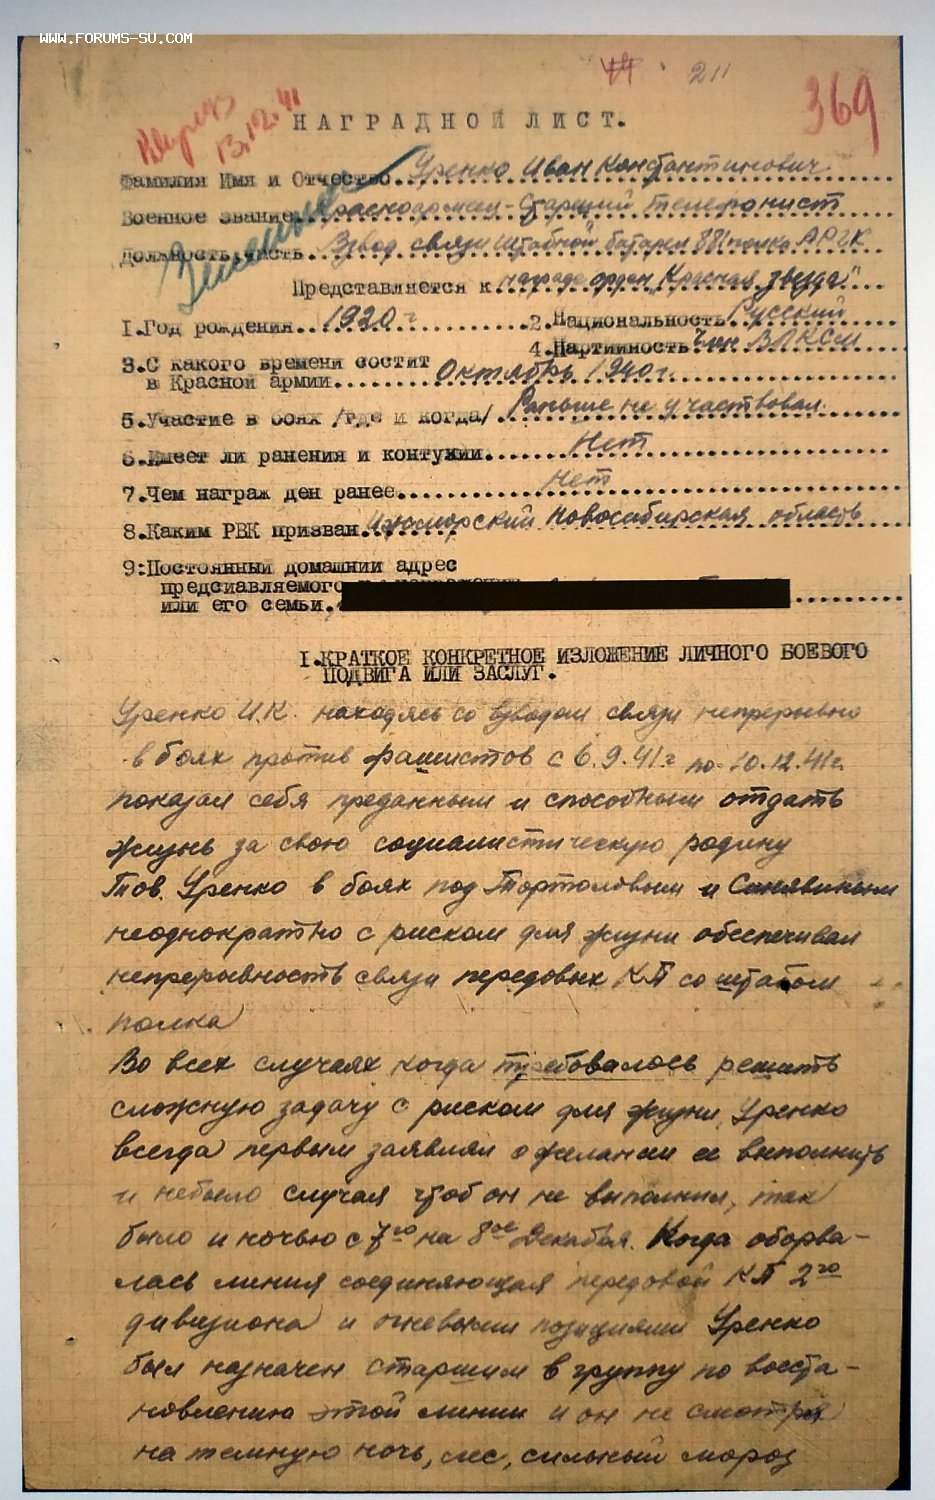 WWW.FORUMS-SU.COM
211
369
13.12.41
НАГРАДНОЙ ЛИСТ.
Фамилия Имя и Отчество Уренко Иван Константинович
Военное звание Красноармеец-Старший телефонист
Должность, часть Взвод связи штабной батареи 881 полка АРГК
Представляется к награде орден „Красная звезда"
1.Год рождения 1920 г 2.Национальность Русский
3.С какого времени состит 4.Партииность Член ВЛКСМ
в Красной армии Октябрь 1940 г.
5.Участие в боях /где и когда/ Раньше не участвовал
6.Имеет ли ранения и контузии Нет
7.Чем награж ден ранее Нет
8.Каким РВК призван Ижморский Новосибирская область
9:Постоянный домашнии адрес
предсиавляемого
или его семьи.
I.КРАТКОЕ КОНКРЕТНОЕ ИЗЛОЖЕНИЕ ЛИЧНОГО БОЕВОГО
ПОДВИГА ИЛИ ЗАСЛУГ.
Уренко И.К. находясь со взводом связи непрерывно
в боях против фашистов с 6.9.41г по 10.12.41г.
показал себя преданным и способным отдать
жизнь за свою социалистическую родину
Тов. Уренко в боях под Тортоловым и Синявиным
неоднократно с риском для жизни обеспечивал
непрерывность связи передовых КП со штабом
полка
Во всех случаях когда требовалось решить
сложную задачу с риском для жизни, Уренко
всегда первым заявлял о желании ее выполнить
и небыло случая чтоб он не выполнил, так
было и ночью с 7го на 8ое Декабря. Когда оборва-
лась линия соединяющая передовой КП 2го
дивизиона и огневыми позициями Уренко
был назначен старшим в группу по восста-
новлению этой линии и он не смотря
на темную ночь, лес, сильный мороз